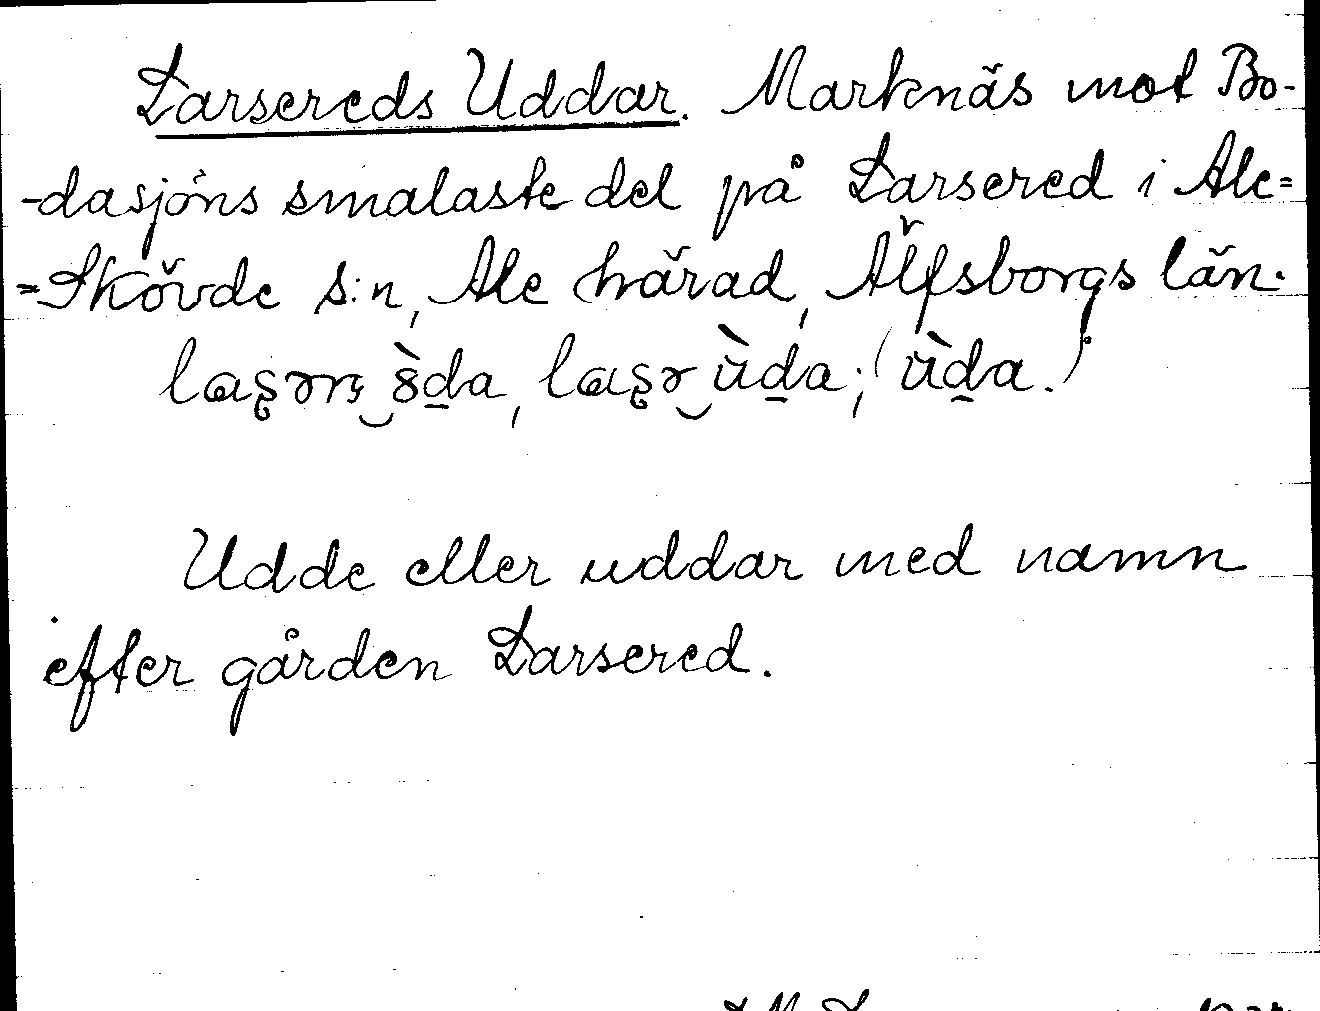 Larsereds Uddar. Marknäs mot Bo-
-dasjöns smalaste del på Larsered i Ale=
=Skövde s:n, Ale härad, Älfsborgs län.
(ùḏa.)
Udde eller uddar med namn
efter gården Larsered.